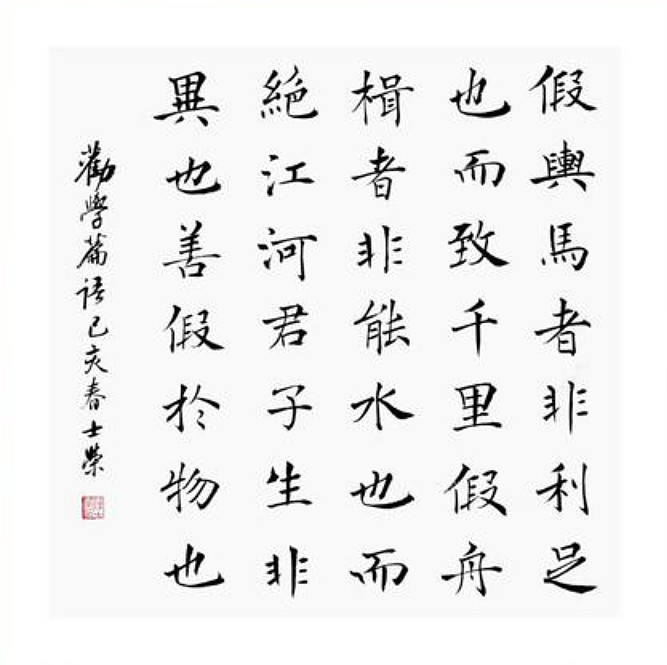 假輿馬者非利足
也而致千里假舟
楫者非能水也而
絕江河君子生非
異也善假於物也
勸學篇語己亥春士榮